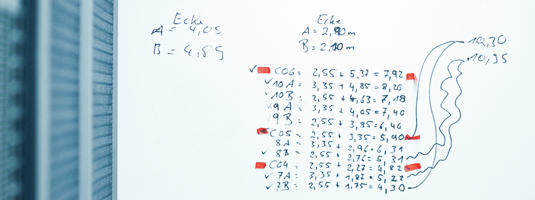 Ecke
A = 4,05
B = 4,85
Ecke
A = 2,90 m
B = 2.10 m
10,30
10,35
✓ C06: 2,55 + 5,37 = 7,92
✓ 10A: 3,35 + 4,85 = 8,20
✓ 10B: 2,55 + 4,63 = 7,18
✓ 9A: 3,35 + 4,05 = 7,40
9B: 2,55 + 3,85 = 6,40
C05: 2,55 + 3,35 = 5,90
8A: 3,35 + 2,96 = 6,31
✓ 8B: 2,55 + 2,76 = 5,31
C04: 2,55 + 2,27 = 4,82
✓ 7A: 3,35 + 1,87 = 5,22
✓ 7B: 2,55 + 1,75 = 4,30